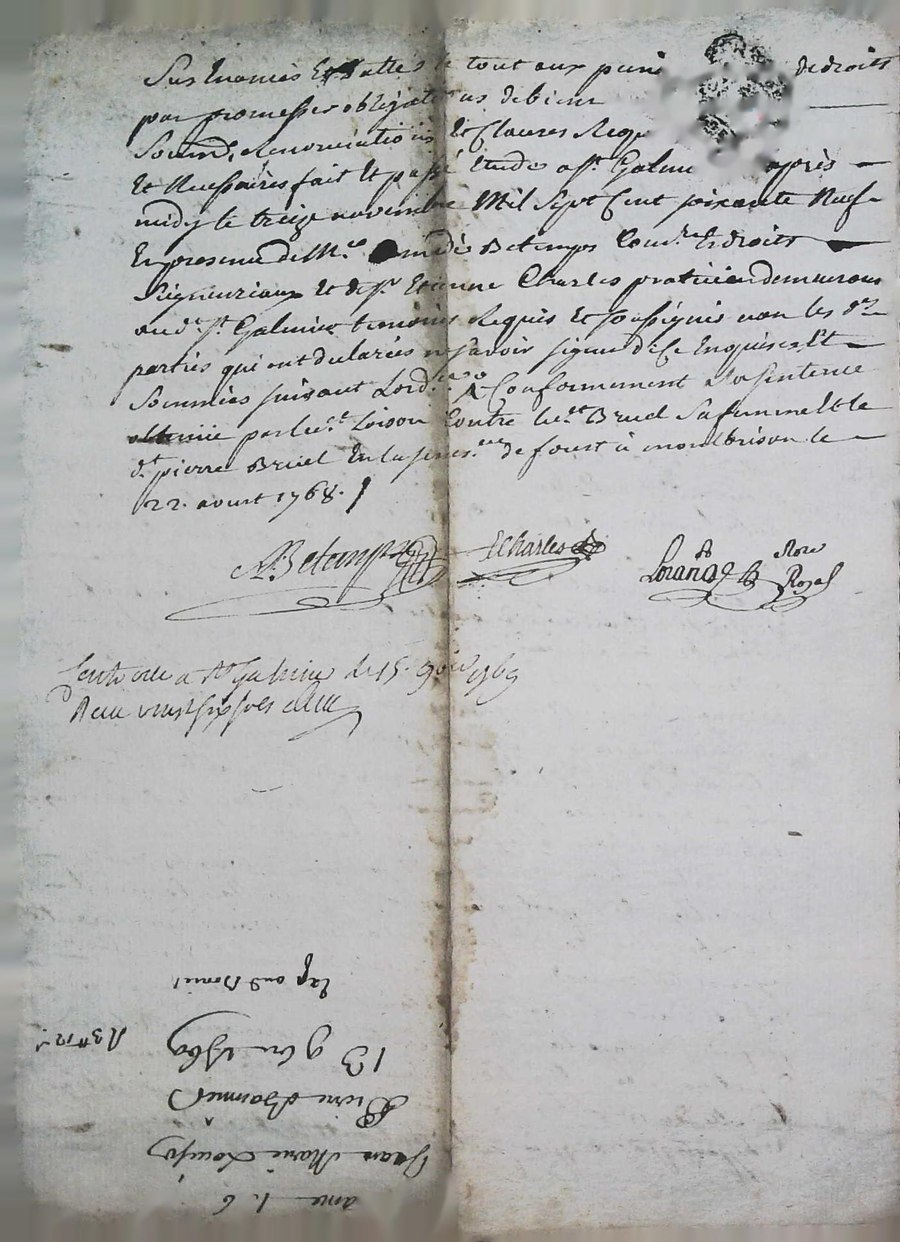 Sus només Et dattes le tout aux pein de droits
par promesses obligations de biens
Soumis. Renonciations Et Clauses Requ
Et Necessaires fait Et passé Etude a st. Galmi après
midy le treize novembre Mil Sept Cent soixante Neuf
En presence de Mre. Betemps Com.re Es droits
Seigneuriaux Et de sr. Etienne Charles praticien demeurans
aud. st. Galmier temoins Requis Et soussignés non les d.
parties qui ont declarées ne savoir signer de Ce Enquises Et
Sommées suivant Lord.ce Conformement a la sentence
obtenüe par led. Loison Contre led. Bruel Sa femme Et le
d. pierre Bruel En la senes.ée de forest a montbrison le
22. aoust 1768.
Betemps ECharles not.re
Royal
a st Galmier le 15. 9bre 1769
Reçu vingt six sols
13 9bre 1769
Pierre
Jean Marie
1. 6